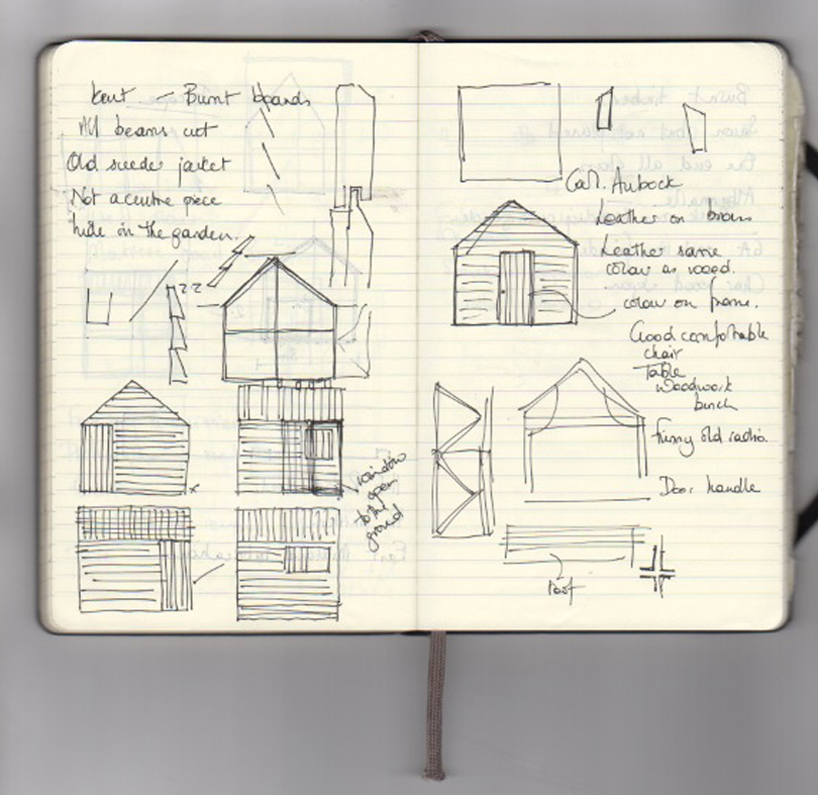 Kent - Burnt boards
All beams cut
Old suede jacket
Not a centre piece
hide in the garden.
window
open
to the
ground
Carl Aubock
Leather on brass
Leather same
colour as wood.
colour on frame.
Good comfortable
chair
Table
woodwork
bench
funny old radio.
Door handle
Roof